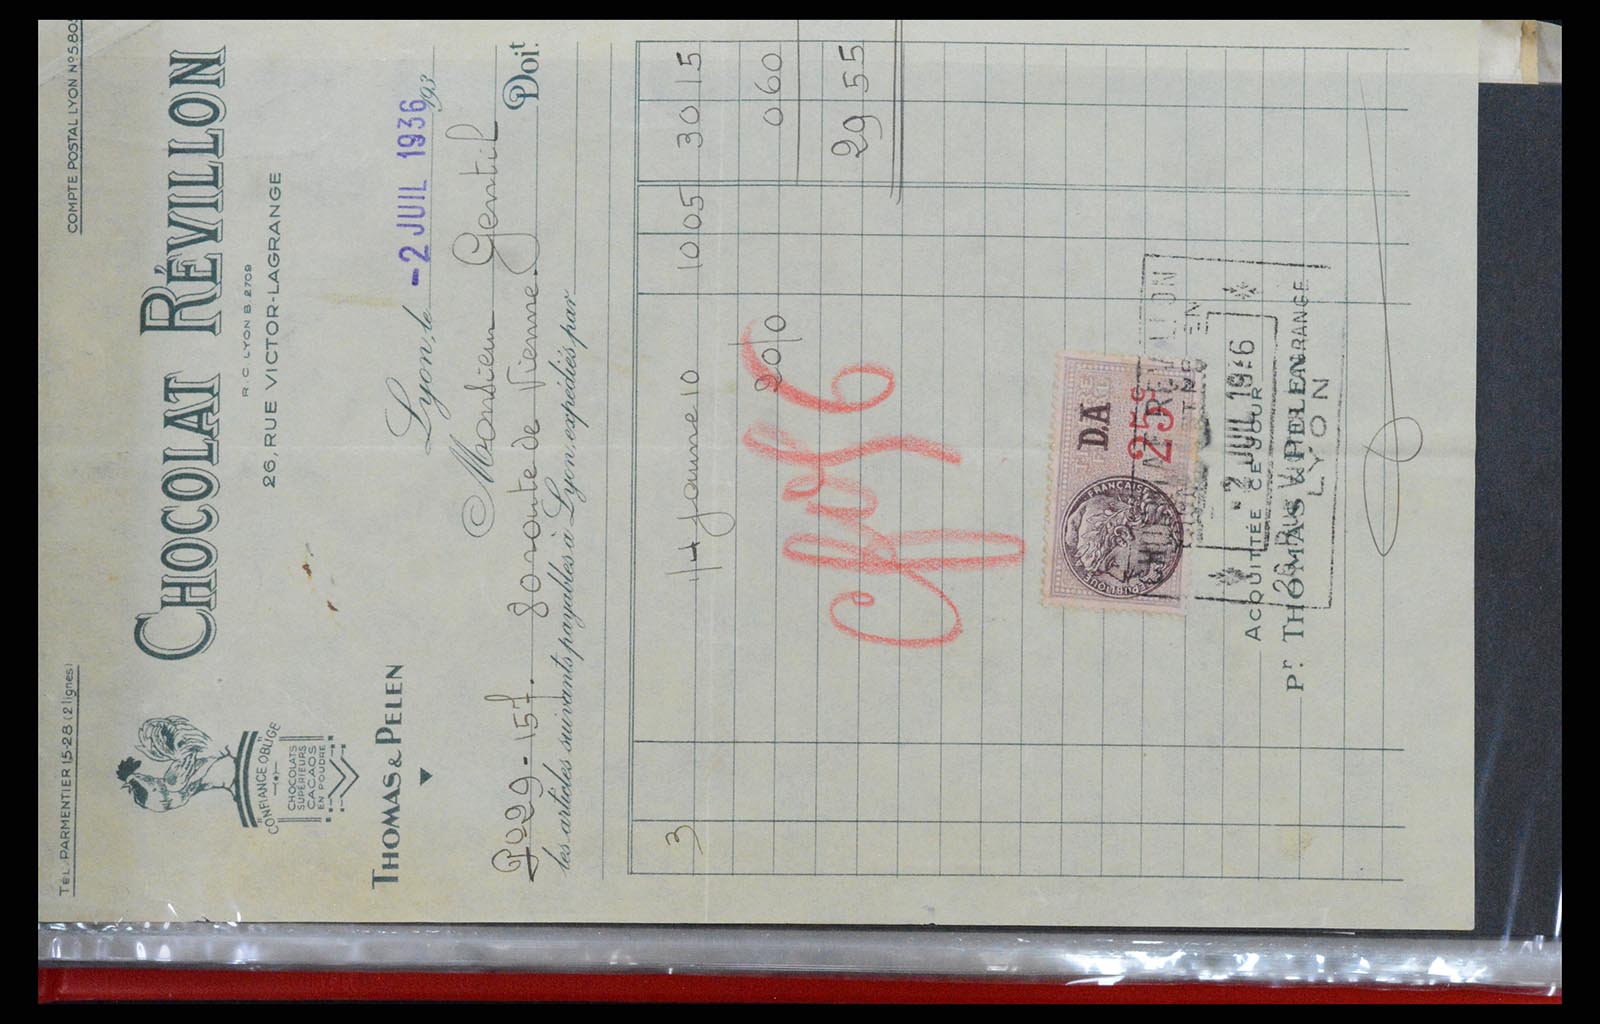 TÉL. PARMENTIER 15-28 (2 lignes)
COMPTE POSTAL LYON N° 5.805
CHOCOLAT RÉVILLON
R.C. LYON B. 2709
26, RUE VICTOR-LAGRANGE
"CONFIANCE OBLIGE"
CHOCOLATS
SUPÉRIEURS
CACAOS
EN POUDRE
THOMAS & PELEN
Lyon, le -2 JUIL 1936 193
Monsieur Gentil
157. 80 route de Vienne. Doit
les articles suivants payables à Lyon, expédiés par
3 1/4 jaune 10 1005 3015
20/0 060
2955
D.A
25c
RÉPUBLIQUE FRANÇAISE
-2 JUIL 1936
ACQUITTÉE CE JOUR
26, Rue Victor-LAGRANGE
Pr. THOMAS & PELEN
LYON